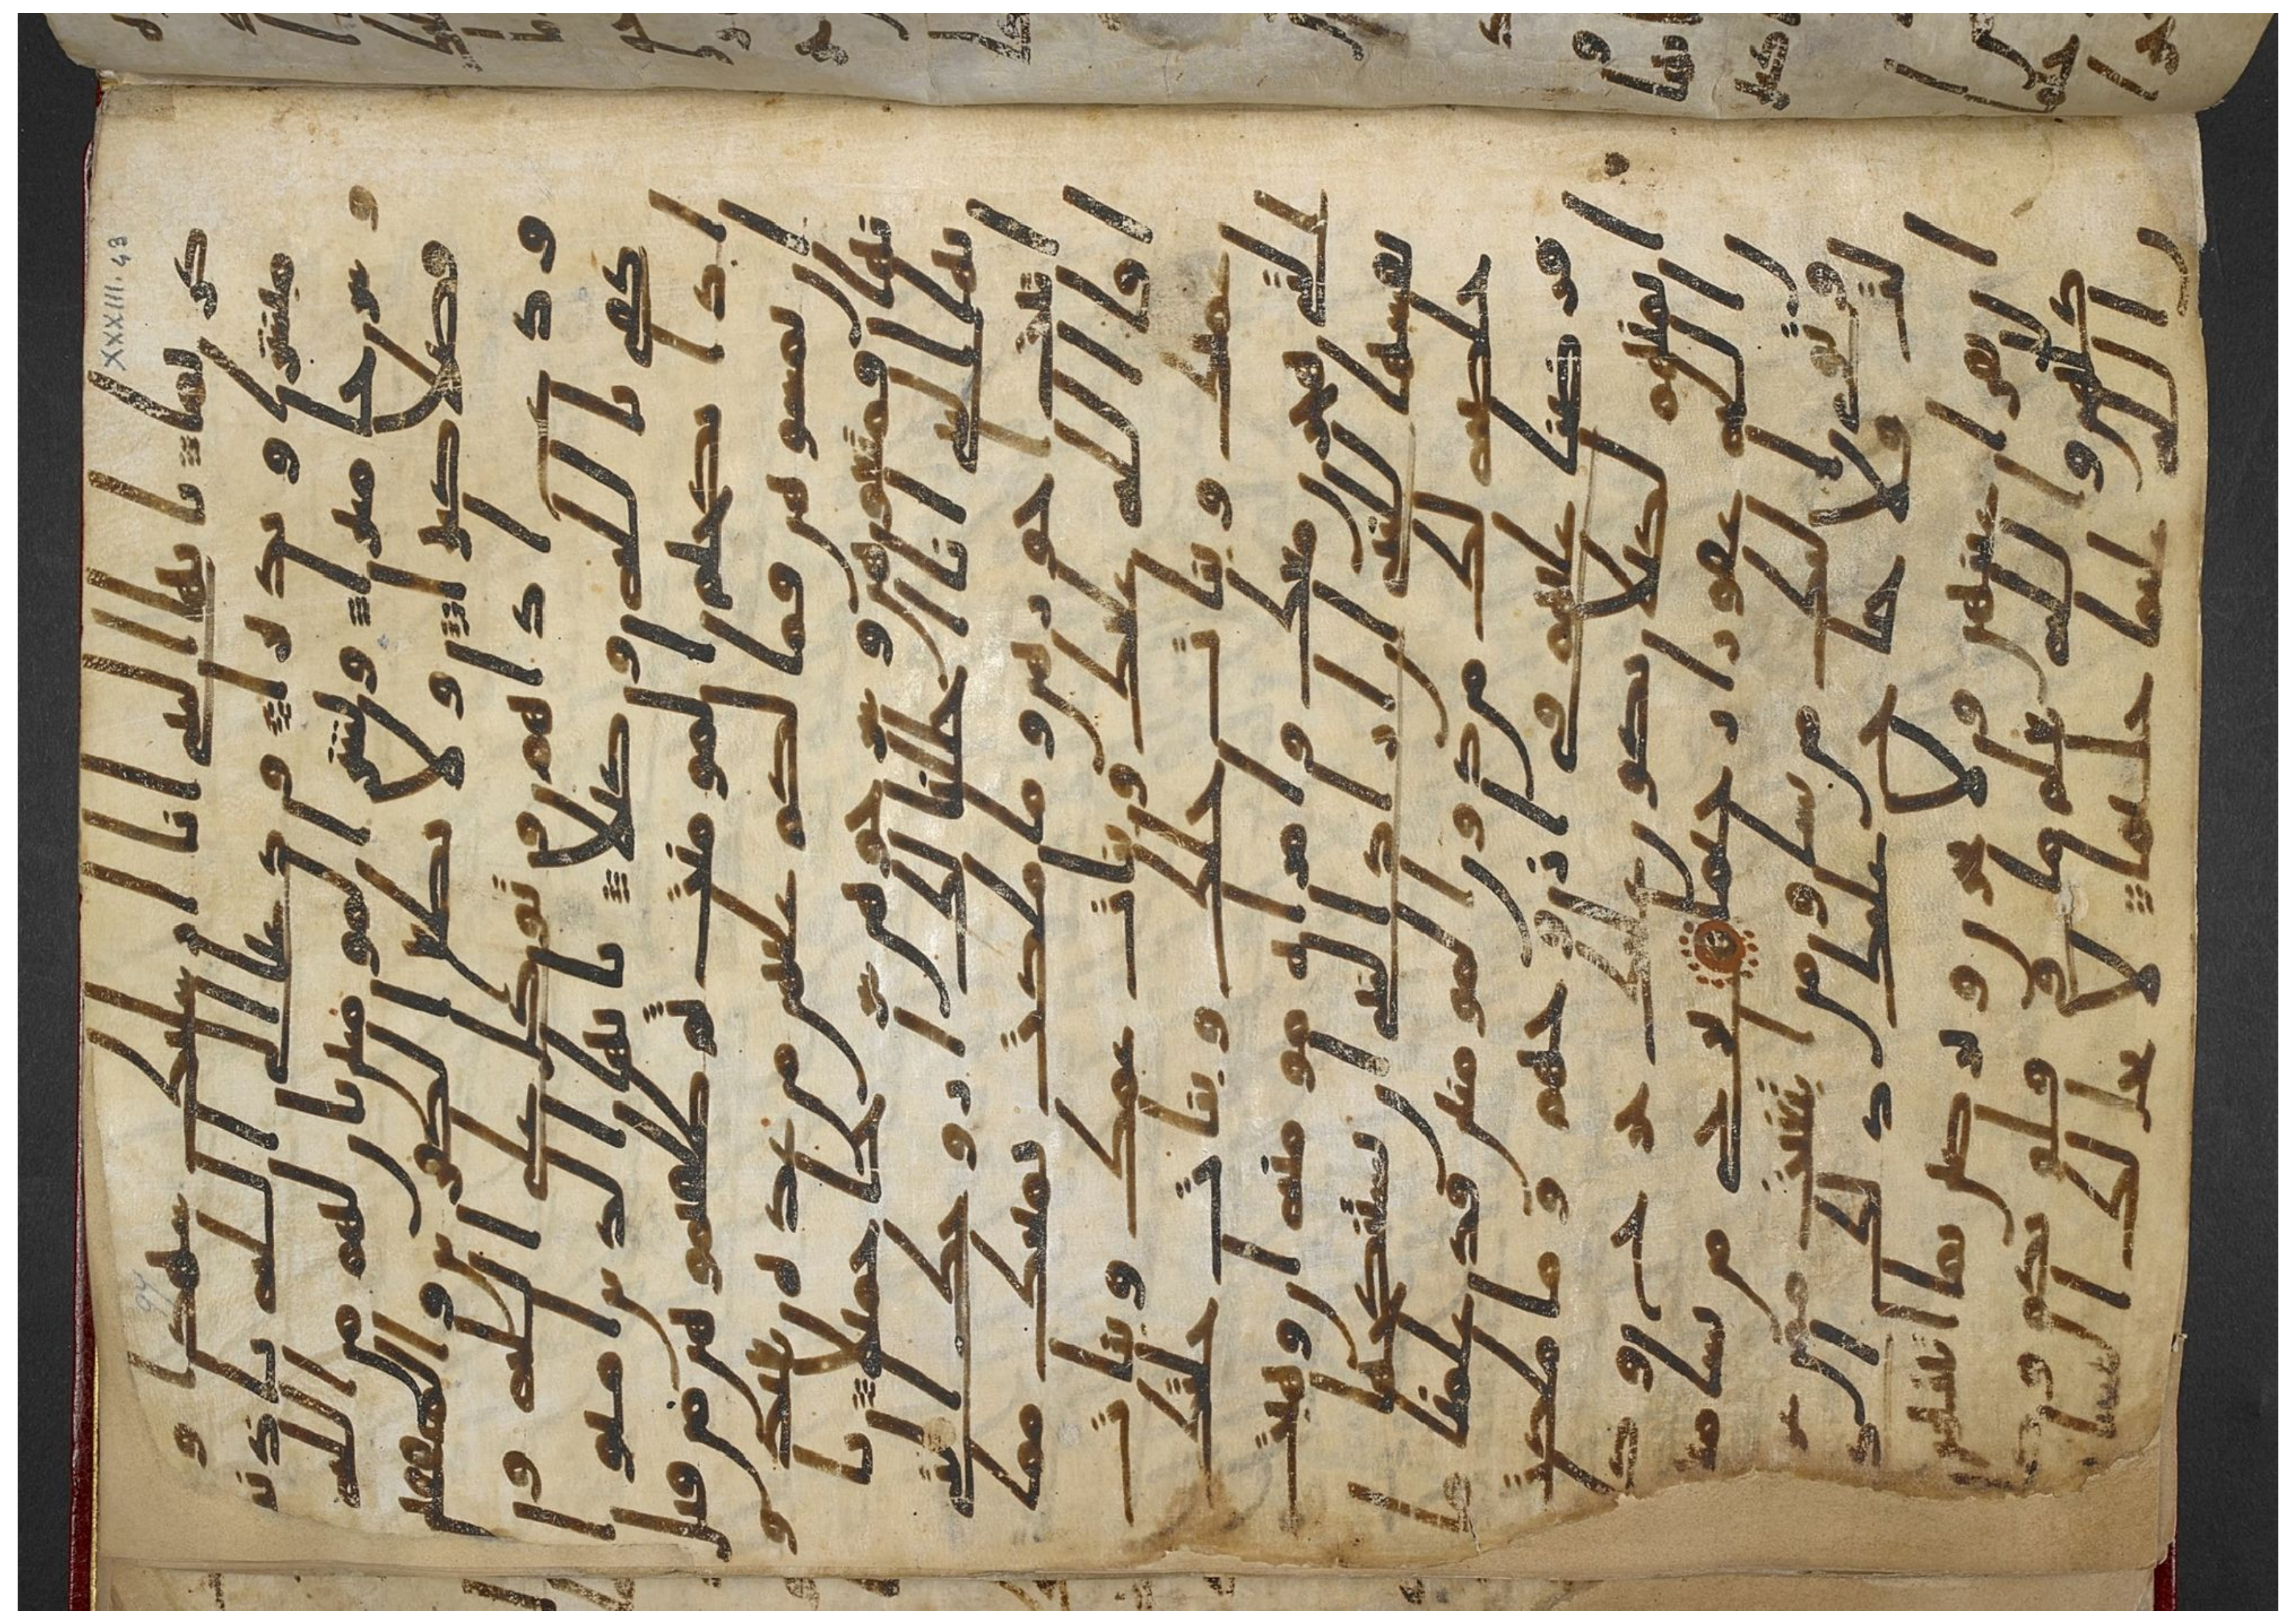 كريما يايها النبى انا ارسلنك شهدا و
مبشرا و نذيرا و دعيا الى الله باذنه
و سرجا منيرا و بشر المومنين بان لهم من الله
فضلا كبيرا و لا تطع الكفرين و المنفقين
و دع اذهم و توكل على الله و
كفى بالله وكيلا يايها الذين امنوا
اذا نكحتم المومنت ثم طلقتموهن من قبل
ان تمسوهن فما لكم عليهن من عدة تعتدو
نها فمتعوهن و سرحوهن سرحا جميلا يا
ايها النبى انا احللنا لك ازوجك التى
اتيت اجورهن و ما ملكت يمينك مما
افا الله عليك و بنات عمك و بنات
عمتك و بنات خلك و بنات خلتك
التى هجرن معك و امراه مومنه ان وهبت
نفسها للنبى ان اراد النبى ان يستنكحها
خلصه لك من دون المومنين قد علمنا ما
فرضنا عليهم فى ازوجهم و ما ملكت
ايمنهم لكيلا يكون عليك حرج و كا
ن الله غفورا رحيما ترجى من تشا من
هن و توى اليك من تشا و من ابتغيت ممن
عزلت فلا جناح عليك ذلك ادنى
ان تقر اعينهن و لا يحزن و يرضين بما اتيتهن
كلهن و الله يعلم ما فى قلوبكم و كا
ن الله عليما حليما لا يحل لك النسا
XXXIII. 43